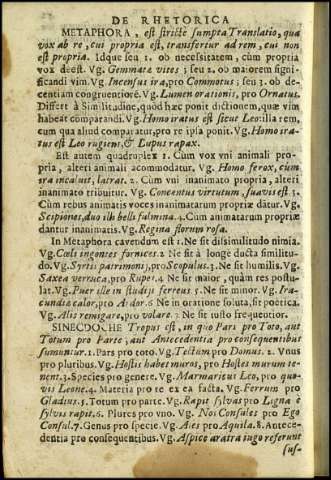 DE RHETORICA
METAPHORA, est stricte sumpta Translatio, qua
vox ab re, cui propria est, transfertur ad rem, cui non
est propria. Idque seu 1. ob necessitatem, cùm propria
vox deest. Vg. Gemmate vites 2 seu 2. ob maiorem signi-
ficandi vim. Vg. Incensus ira, pro Commotus; seu 3. ob de-
centiam congruentiorē. Vg. Lumen orationis, pro Ornatus.
Differt à Similitudine, quòd hæc ponit dictionem, quæ vim
habeat comparandi. Vg. Homo iratus est sicut Leo: illa rem,
cum qua aliud comparatur, pro re ipsa ponit. Vg. Homo ira-
tus est Leo rugiens, & Lupus rapax.
Est autem quadruplex 1. Cùm vox vni animali pro-
pria, alteri animali acomodatur. Vg. Homo ferox, cùm
ira incaluit, latrat. 2. Cùm vni inanimato propria, alteri
inanimato tribuitur. Vg. Concentus virtutum, suavis est. 3.
Cùm rebus animatis voces inanimatarum propriæ dātur. Vg.
Scipiones, duo illi belli fulmina. 4. Cùm animatarum propriæ
dantur inanimatis. Vg. Regina florum rosa.
In Metaphora cavendum est 1. Ne sit dissimilitudo nimia.
Vg. Cœli ingentes fornices. 2 Ne sit à longe ducta similitu-
do. Vg. Syrtis patrimonij, pro Scopulus. 3. Ne sit humilis. Vg.
Saxea verruca, pro Rupes. 4. Ne sit maior, quàm res postu-
lat. Vg. Puer ille in studijs ferreus. 5. Ne sit minor. Vg. Ira-
cundiæ calor, pro Ardor. 6. Ne in oratione soluta, sit poëtica.
Vg. Alis remigare, pro volare. 7. Ne sit iusto frequentior.
SINECDOCHE Tropus est, in quo Pars pro Toto, aut
Totum pro Parte, aut Antecedentia pro consequentibus
sumuntur. 1. Pars pro toto. Vg. Tectum pro Domus. 2. Vnus
pro pluribus. Vg. Hostis habet muros, pro Hostes murum te-
nent. 3. Species pro genere. Vg. Marmaricus Leo, pro quo-
vis Leone. 4. Materia pro re ex ea facta. Vg. Ferrum pro
Gladius. 5. Totum pro parte. Vg. Rapit sylvas pro Ligna è
sylvis rapit. 6. Plures pro vno. Vg. Nos Consules pro Ego
Consul. 7. Genus pro specie. Vg. Ales pro Aquila. 8. Antece-
dentia pro consequentibus. Vg. Aspice aratra iugo referunt
sus-